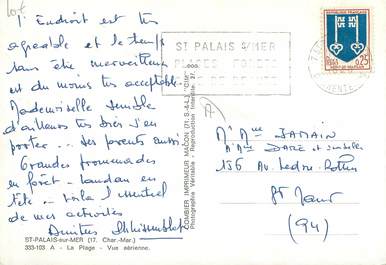 L'Endroit est très
agréable et le temps
sans être merveilleux
est du moins très acceptable.
Mademoiselle semble
d'ailleurs très bien s'en
porter... Ses parents aussi.
Grandes promenades
en forêt - landau en
tête - voilà l'essentiel
de mes activités
Amitiés
ST-PALAIS-sur-MER (17. Char.-Mar.)
333-103 A - La Plage - Vue aérienne.
COMBIER IMPRIMEUR MACON (71. S.-&-L.) "CIM"
Photographie Véritable - Reproduction Interdite
ST PALAIS S/MER
PLAGES FORETS
REPUBLIQUE FRANÇAISE
0,25
MONT-DE-MARSAN
Mr Mme JAMAIN
136 Av. Ledru-Rollin
St Maur
(94)